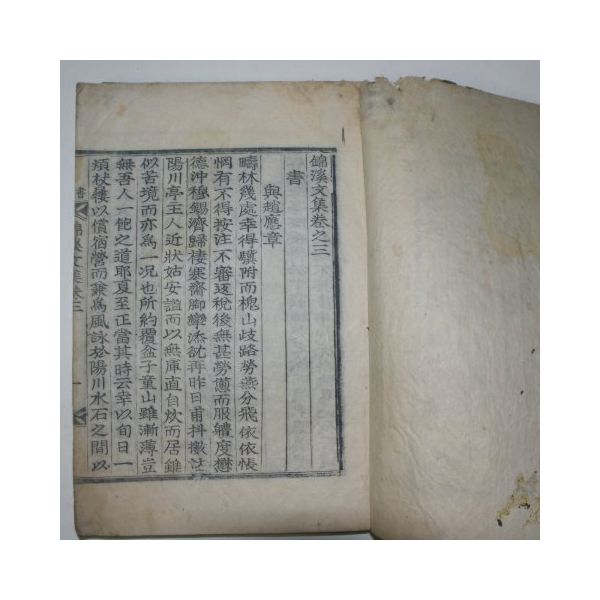 錦溪文集卷之三
書
與趙應章
疇林幾處幸得驥附而槐山歧路勞燕分飛依依悵
惘有不得按注不審返稅後無甚勞憊而服體度懋
德沖穆錫濟歸棲寒齋脚攣添沈再昨日甫抖擻
陽川亭主人近狀姑安謐而以無庫直自炊而居雖
似苦境而亦爲一況也所約覆盆子童山雖漸薄豈
無吾人一飽之道耶夏至正當其時云幸以旬日一
煩杖屨以償宿營而兼爲風詠於陽川水石之間以
書 錦溪文集卷三 一